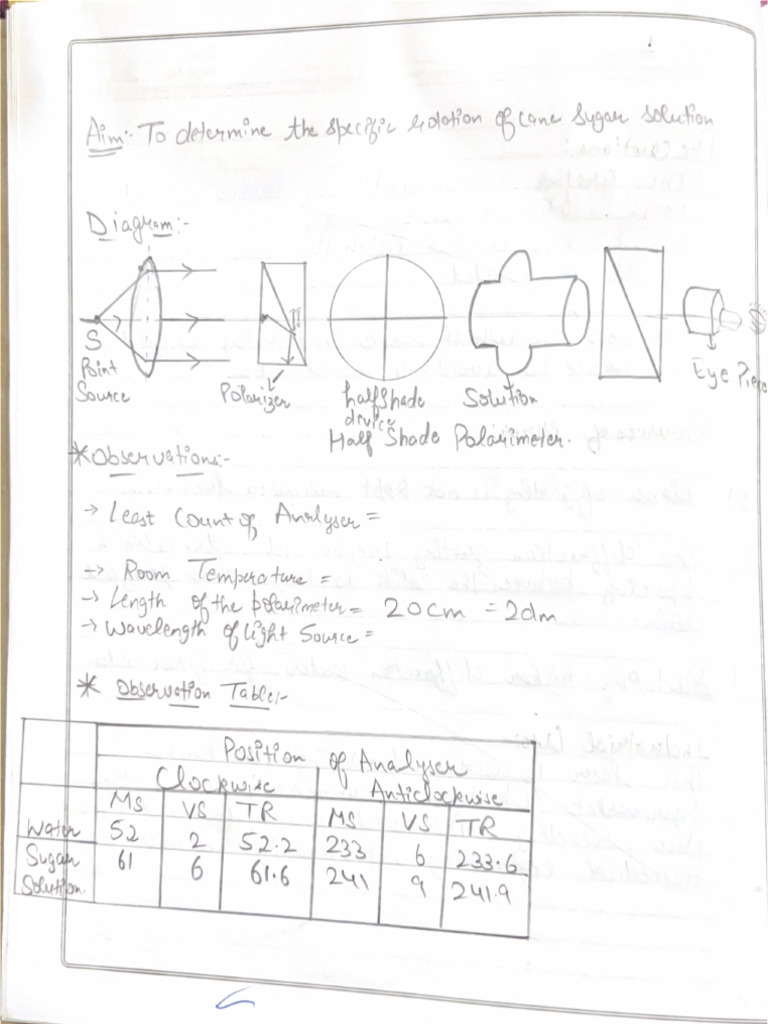 Aim:- To determine the specific rotation of cane sugar solution
Diagram:-
S
Point
Source
Polarizer
halfshade
device
Solution
Eye Piece
Half Shade Polarimeter.
* Observations:-
→ Least Count of Analyser =
→ Room Temperature =
→ Length of the polarimeter = 20cm = 2dm
→ Wavelength of light Source =
* Observation Table:-
Position of Analyser
Clockwise Anticlockwise
MS VS TR MS VS TR
Water 52 2 52.2 233 6 233.6
Sugar Solution 61 6 61.6 241 9 241.9